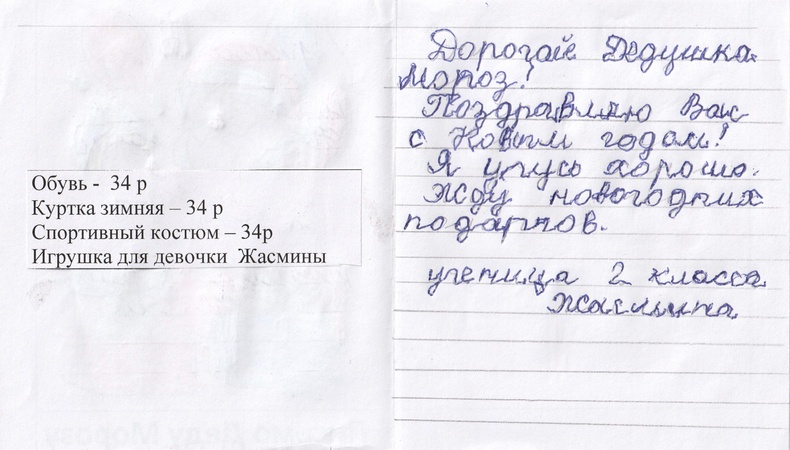 Обувь - 34 р
Куртка зимняя – 34 р
Спортивный костюм – 34р
Игрушка для девочки Жасмины
Дорогой Дедушка
Мороз!
Поздравляю Вас
с Новым годом!
Я учусь хорошо.
Жду новогодних
подарков.
ученица 2 класса
Жасмина